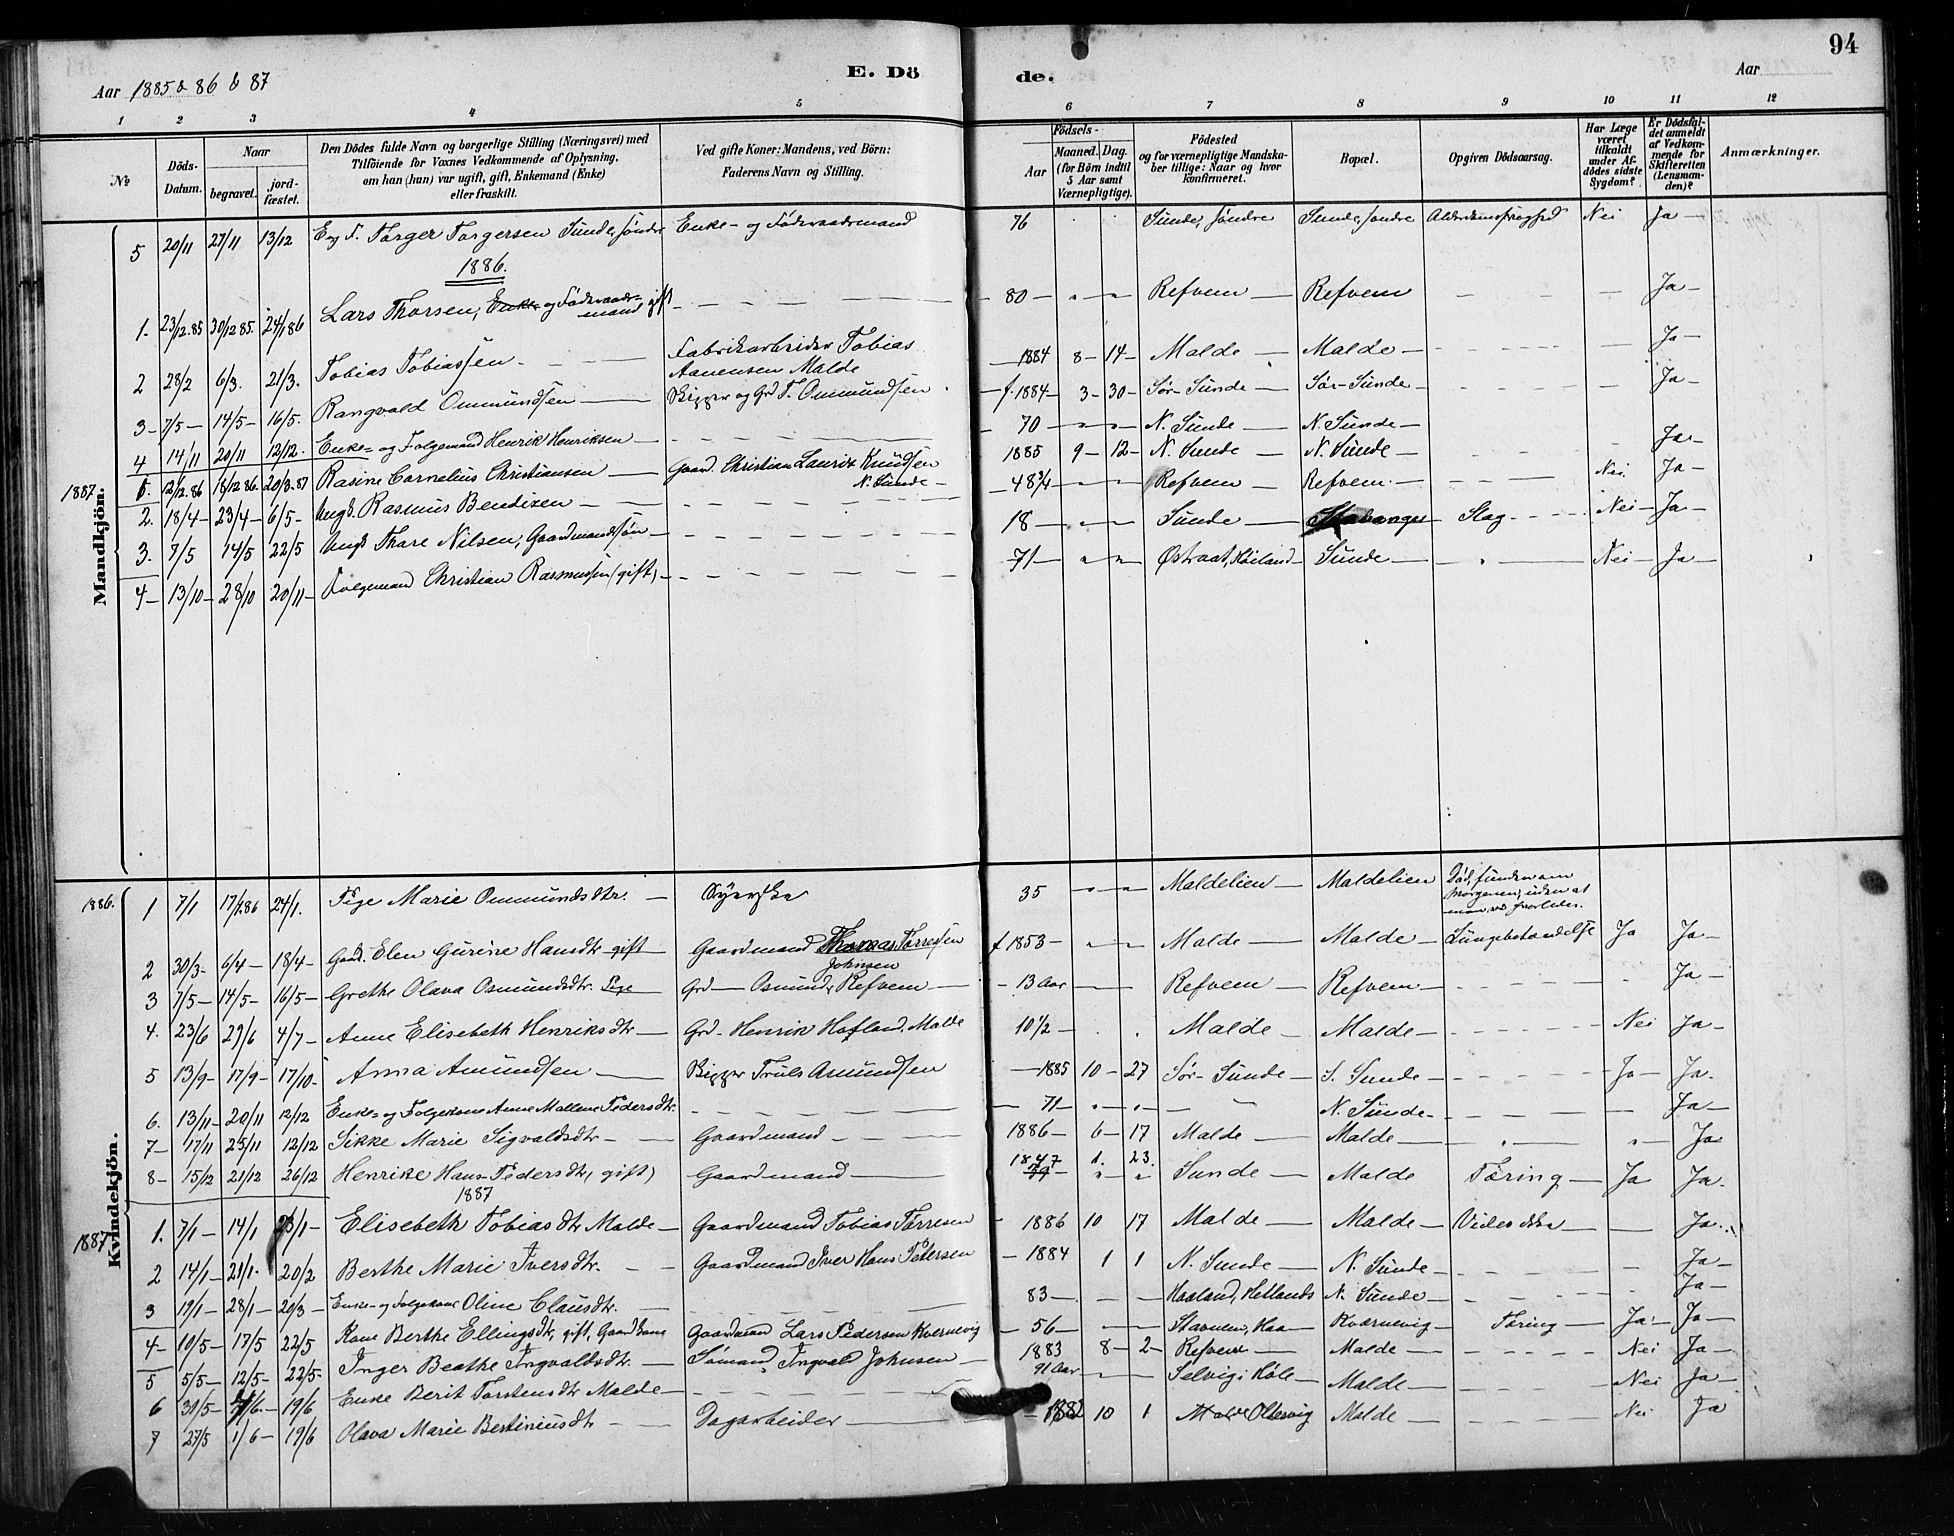 94
Aar 1885 & 86 & 87
E. Dö
de.
Aar
1 2 3 4 5 6 7 8 9 10 11 12
No
Döds-Datum.
Naar
begravet.
jord-fæstet.
Den Dödes fulde Navn og borgerlige Stilling (Næringsvei) med
Tilföiende for Voxnes Vedkommende af Oplysning,
om han (hun) var ugift, gift, Enkemand (Enke)
eller fraskilt.
Ved gifte Koner: Mandens, ved Börn:
Faderens Navn og Stilling.
Födsels-
Aar
Maaned. Dag.
(for Börn indtil
5 Aar samt
Værnepligtige).
Födested
og for værnepligtige Mandska-
ber tillige: Naar og hvor
konfirmeret.
Bopæl.
Opgiven Dödsaarsag.
Har Læge
været
tilkaldt
under Af-
dödes sidste
Sygdom?
Er Dödsfal-
det anmeldt
af Vedkom-
mende for
Skifteretten
(Lensman-
den)?
Anmærkninger.
Mandkjön.
5 20/11 27/11 13/12 Torger Torgersen Sunde, söndre Enke- og Föderaadsmand 76 Sunde, söndre Sunde, söndre Nei Ja -
1886.
1. 23/12.85 30/12 85. 24/1 86 Lars Thorsen, Enke- og Föderaads-mand gift - 80 - " " Refvem - Refvem - - Ja -
2 28/2 6/3. 21/3. Tobias Tobiassen - Fabrikarbeider Tobias
Aanensen Malde 1884 8 - 14 - Malde - Malde - Ja -
3 - 7/5 - 14/5 - 16/5. Rangvald Ommundsen - Skipper og Grd T. Ommundsen f. 1884 - 3 - 30 - Sör-Sunde - Sör-Sunde - Ja -
4 14/11 20/11 12/12. Enke- og Folgemand Henrik Henriksen - 70 - N. Sunde - N. Sunde -
1887.
1. 12/12.86 18/12 86. 20/3.87 Rasine Cornelius Christiansen - Gaard. Christian Lauritz Knudsen
N. Sunde - 1885 9 - 12 - N. Sunde - N. Sunde - Ja -
2. 18/4 - 23/4 - 6/5 - Ungk. Rasmus Bendixen - 48 3/4 - Refvem - Refvem - Nei Ja -
3. 7/5 14/5 22/5 Ungk Thore Nilsen, Gaardmandssön - 18 - Sunde - Stavanger Slag - Nei - Ja -
4 - 13/10 - 28/10 20/11 - Folgemand Christian Rasmussen (gift) - 71 - " " Østraat, Höiland Sunde - Nei - Ja -
Kvindekjön.
1886. 1 7/1 17/1 86 24/1. Pige Marie Ommundsdtr. - Syerske 35 " " Maldelien - Maldelien Död, funden om
Morgenen, uden at
2 30/3 - 6/4 - 18/4 - Gaard. Elen Gurine Hansdtr gift Gaardmand Thomas Torresen
Johnsen f 1853 - Malde - Malde - Lungebetændelse Ja Ja -
3 7/5 - 14/5 - 16/5 - Grethe Olava Osmundsdtr. Pige Grd - Osmund Refvem - 13 Aar Refvem - Refvem - Ja -
4. 23/6 29/6 4/7 - Anne Elisebeth Henriksdtr - Grd - Henrik Hafland. Malde 10 1/2 - Malde - Malde - Nei Ja -
5 13/9 - 17/9 - 17/10 - Anna Amundsen - Skipper Truls Amundsen 1885 10 - 27 Sör-Sunde - S. Sunde - Ja - Ja.
6. 13/11 - 20/11 12/12 Enke- og Folgekone Anne Mallene Pedersdtr. 71 - N. Sunde - Ja -
7 - 17/11 25/11 12/12 Sikke Marie Sigvaldsdtr - Gaardmand - 1886 - 6 - 17 Malde - Malde - Ja
8 - 15/12 21/12 26/12 Henrike Hans-Pedersdtr (gift) Gaardmand - 1847 1. 23. Sunde - Malde Tæring - Ja Ja.
1887
1887 1. 7/1 - 14/1 23/1 - Elisebeth Tobiasdtr Malde - Gaardmand Tobias Torresen 1886 10 17 Malde - Malde - Ja.
2 14/1 - 21/1. 20/2 Berthe Marie Iversdtr. - Gaardmand Iver Hans Pedersen - 1884 1 1 N. Sunde - N. Sunde - Ja -
3 19/1 - 28/1 - 20/3 - Enke- og Folgekone Oline Clausdtr. - 83 - Haaland, Hetlands N. Sunde - Ja -
4 - 10/5 - 17/5 22/5 Kone Berthe Ellingsdtr, gift, Gaardmand Lars Pedersen Kvernevig - 56 - Stavnem, Haa - Kværnevig - Tæring - Ja - Ja -
5 5/5 - 12/5 - 22/5 - Inger Beathe Ingvaldsdtr. - Sömand Ingvald Johnsen - 1883 8 - 2 - Refvem - Malde - Nei Ja -
6 31/5 - 7/6 - 19/6 Enke Berit Torstensdtr Malde - 91 Aar Selvig i Höle - Malde - Nei Ja -
7 27/5 1/6 - 19/6 Olava Marie Bertiniusdtr - Dagarbeider - 1882 10 1 Malde Ottervig Malde - Nei Ja